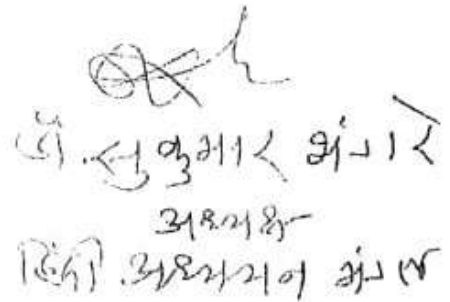 डॉ. सुकुमार भंडारे
अध्यक्ष
हिंदी अध्ययन मंडळ